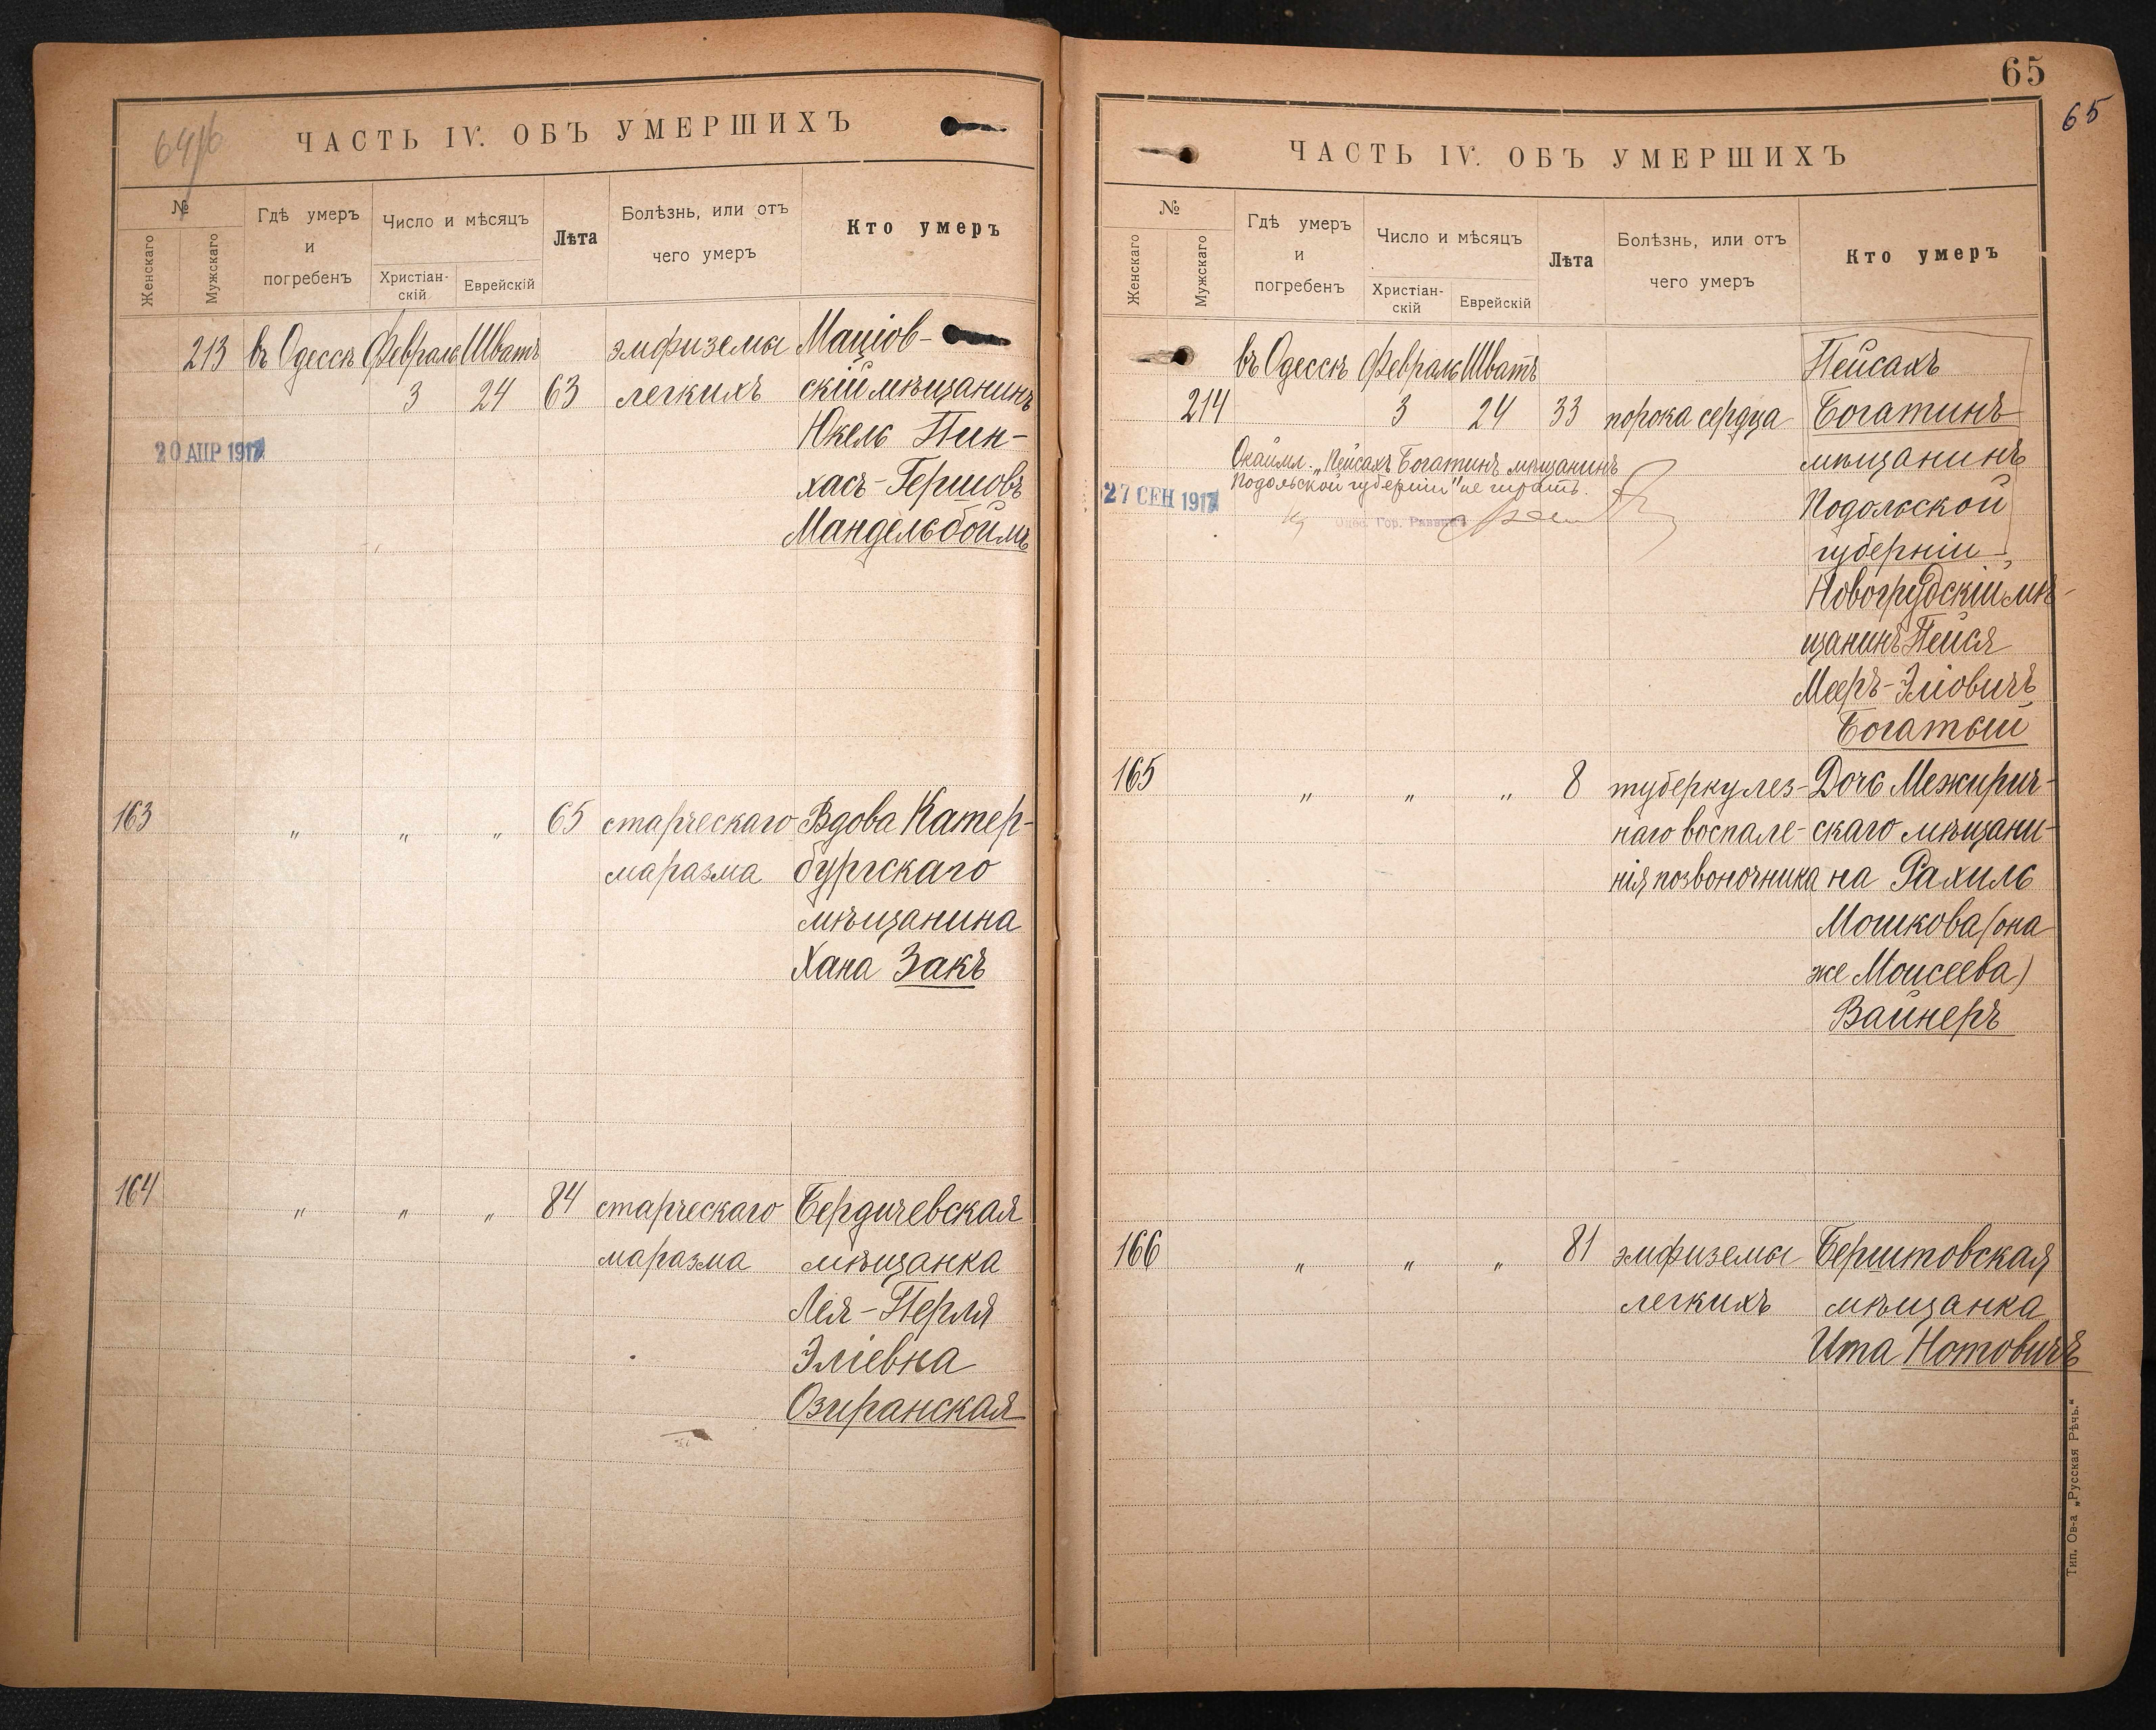 ЧАСТЬ IV. ОБЪ УМЕРШИХЪ
№
Женскаго
Мужскаго
Гдѣ умеръ
и
погребенъ
Число и мѣсяцъ
Христіан-
скій
Еврейскій
Лѣта
Болѣзнь, или отъ
чего умеръ
Кто умеръ
213 въ Одессѣ Февраль Шватъ эмфиземы Маціов-
3 24 63 легкихъ скій мѣщанинъ
Юкель Пин-
20 АПР 1917
хасъ-Гершовъ
Мандельбоймъ
163 " " " 65 старческаго Вдова Катер-
маразма бургскаго
мѣщанина
Хана Закъ
164 " " " 84 старческаго Бердичевская
маразма мѣщанка
Лея-Перля
Эліевна
Озиранская
65
65
ЧАСТЬ IV. ОБЪ УМЕРШИХЪ
№
Женскаго
Мужскаго
Гдѣ умеръ
и
погребенъ
Число и мѣсяцъ
Христіан-
скій
Еврейскій
Лѣта
Болѣзнь, или отъ
чего умеръ
Кто умеръ
въ Одессѣ Февраль Шватъ Пейсахъ
214 3 24 33 порока сердца Богатинъ
мѣщанинъ
Подольской
губерніи
Окаймл. „Пейсахъ Богатинъ мѣщанинъ
Подольской губерніи" не читать.
27 СЕН 1917
Одес. Гор. Раввинъ
Новогрудскій мѣ-
щанинъ Пейся
Мееръ-Эліовичъ
Богатый
165 " " " 8 туберкулез- Дочь Межирич-
наго воспале- скаго мѣщани-
нія позвоночника на Рахиль
Мошкова (она
же Моисеева)
Вайнеръ
166 " " " 81 эмфиземы Берштовская
легкихъ мѣщанка
Ита Нотовичъ
Тип. Ов-а „Русская Рѣчь."